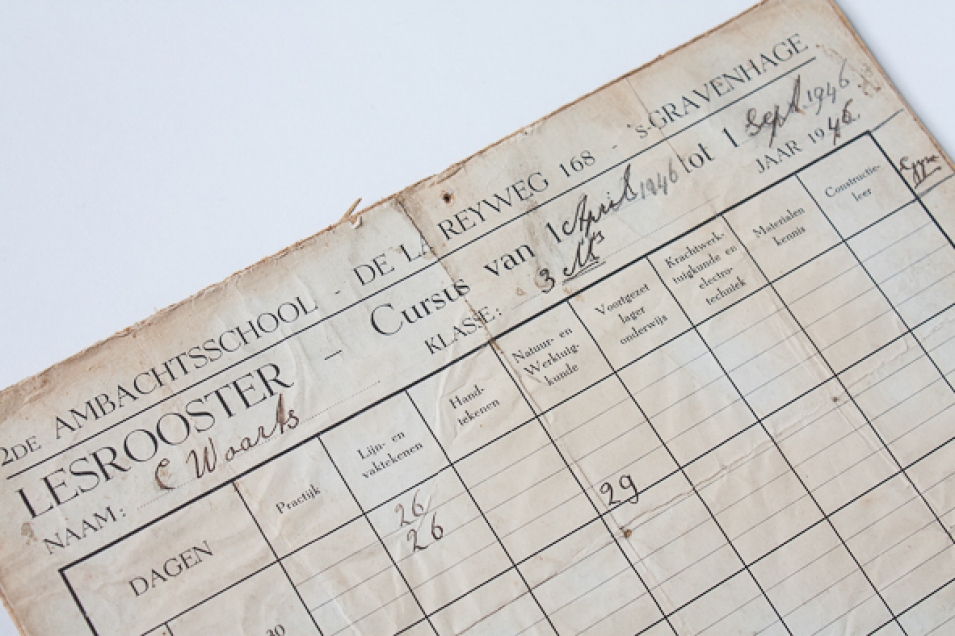 2DE AMBACHTSSCHOOL - DE LA REYWEG 168 - 's-GRAVENHAGE.
LESROOSTER - Cursus van 1 April 1946 tot 1 Sept. 1946
NAAM: C Waarts KLASSE: 3 JAAR 1946
DAGEN
Practijk
Lijn- en
vaktekenen
Hand-
tekenen
Natuur- en
Werktuig-
kunde
Voortgezet
lager
onderwijs
Krachtwerk-
tuigkunde en
electro-
techniek
Materialen
kennis
Constructie-
leer
26
26
29
30